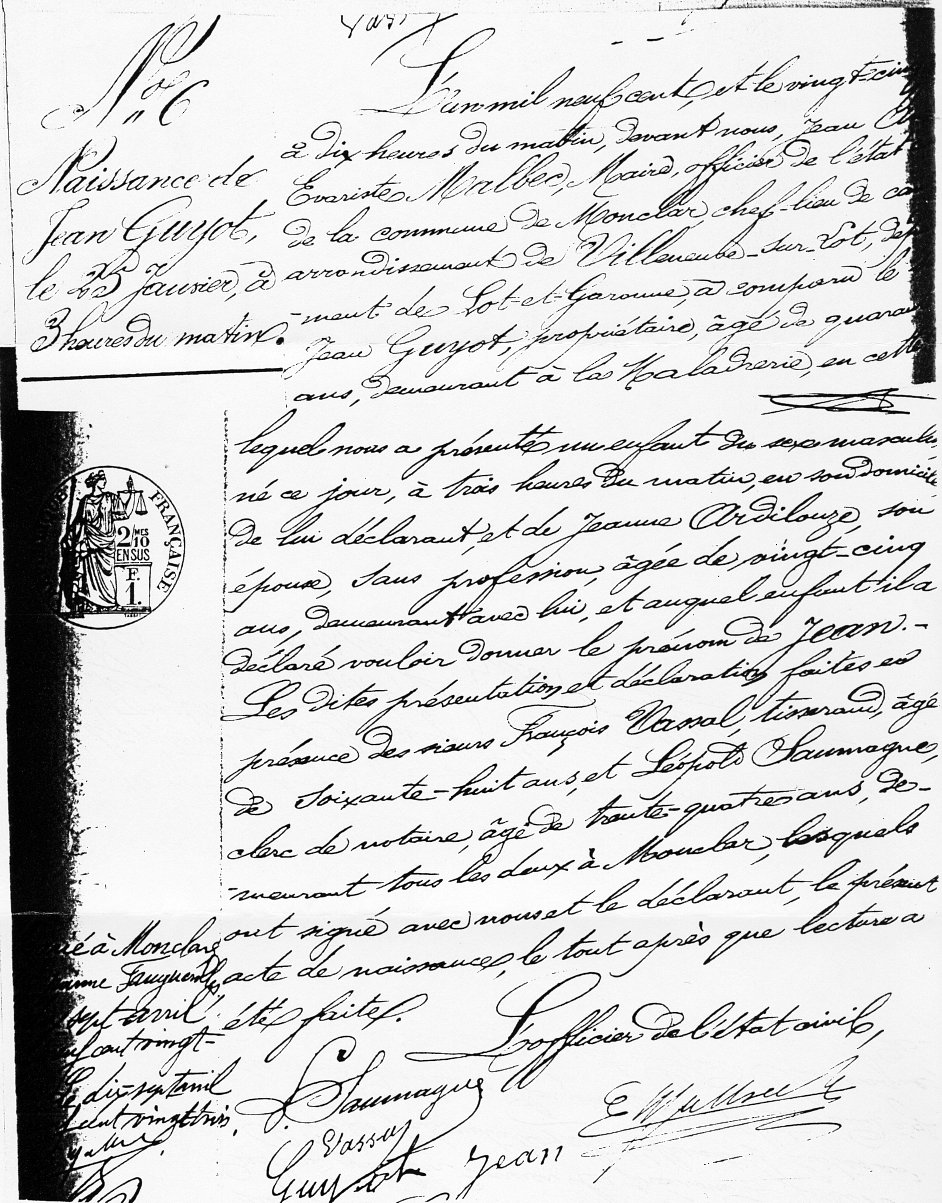 N° 6
Naissance de
Jean Guyot,
le 25 Janvier, à
3 heures du matin.
L'an mil neuf cent, et le vingt-cinq
à dix heures du matin, devant nous, Jean
Evariste Malbec, Maire, officier de l'état
de la commune de Monclar, chef-lieu de ca
arrondissement de Villeneuve-sur-Lot, dép
-ment de Lot-et-Garonne, a comparu le
Jean Guyot, propriétaire, âgé de quaran
ans, demeurant à la Maladrerie, en cette
lequel nous a présenté un enfant du sexe masculin,
né ce jour, à trois heures du matin, en son domicile
de lui déclarant, et de Jeanne Ardilouze, son
épouse, sans profession, âgée de vingt-cinq
ans, demeurant avec lui, et auquel enfant il a
déclaré vouloir donner le prénom de Jean.-
Les dites présentation et déclaration faites en
présence des sieurs François Vassal, tisserand, âgé
de soixante-huit ans, et Léopold Saumagne,
clerc de notaire, âgé de trente-quatre ans, de-
-meurant tous les deux à Monclar, lesquels
ont signé avec nous et le déclarant, le présent
acte de naissance, le tout après que lecture a
été faite.
L'officier de l'état civil,
L. Saumagne
Vassal
Guyot Jean
FRANÇAISE
2/10 MES
EN SUS
1 F.
ié à Monclar
sept avril
cent vingt-
dix-sept avril
cent vingt trois